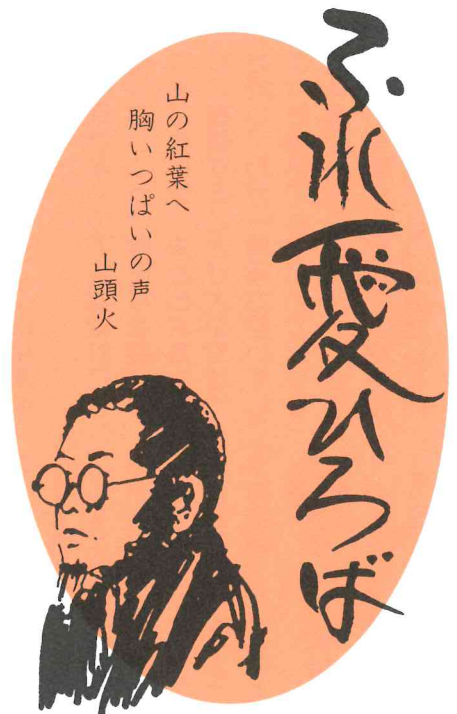 ふれ愛ひろば
山の紅葉へ
胸いっぱいの声
山頭火